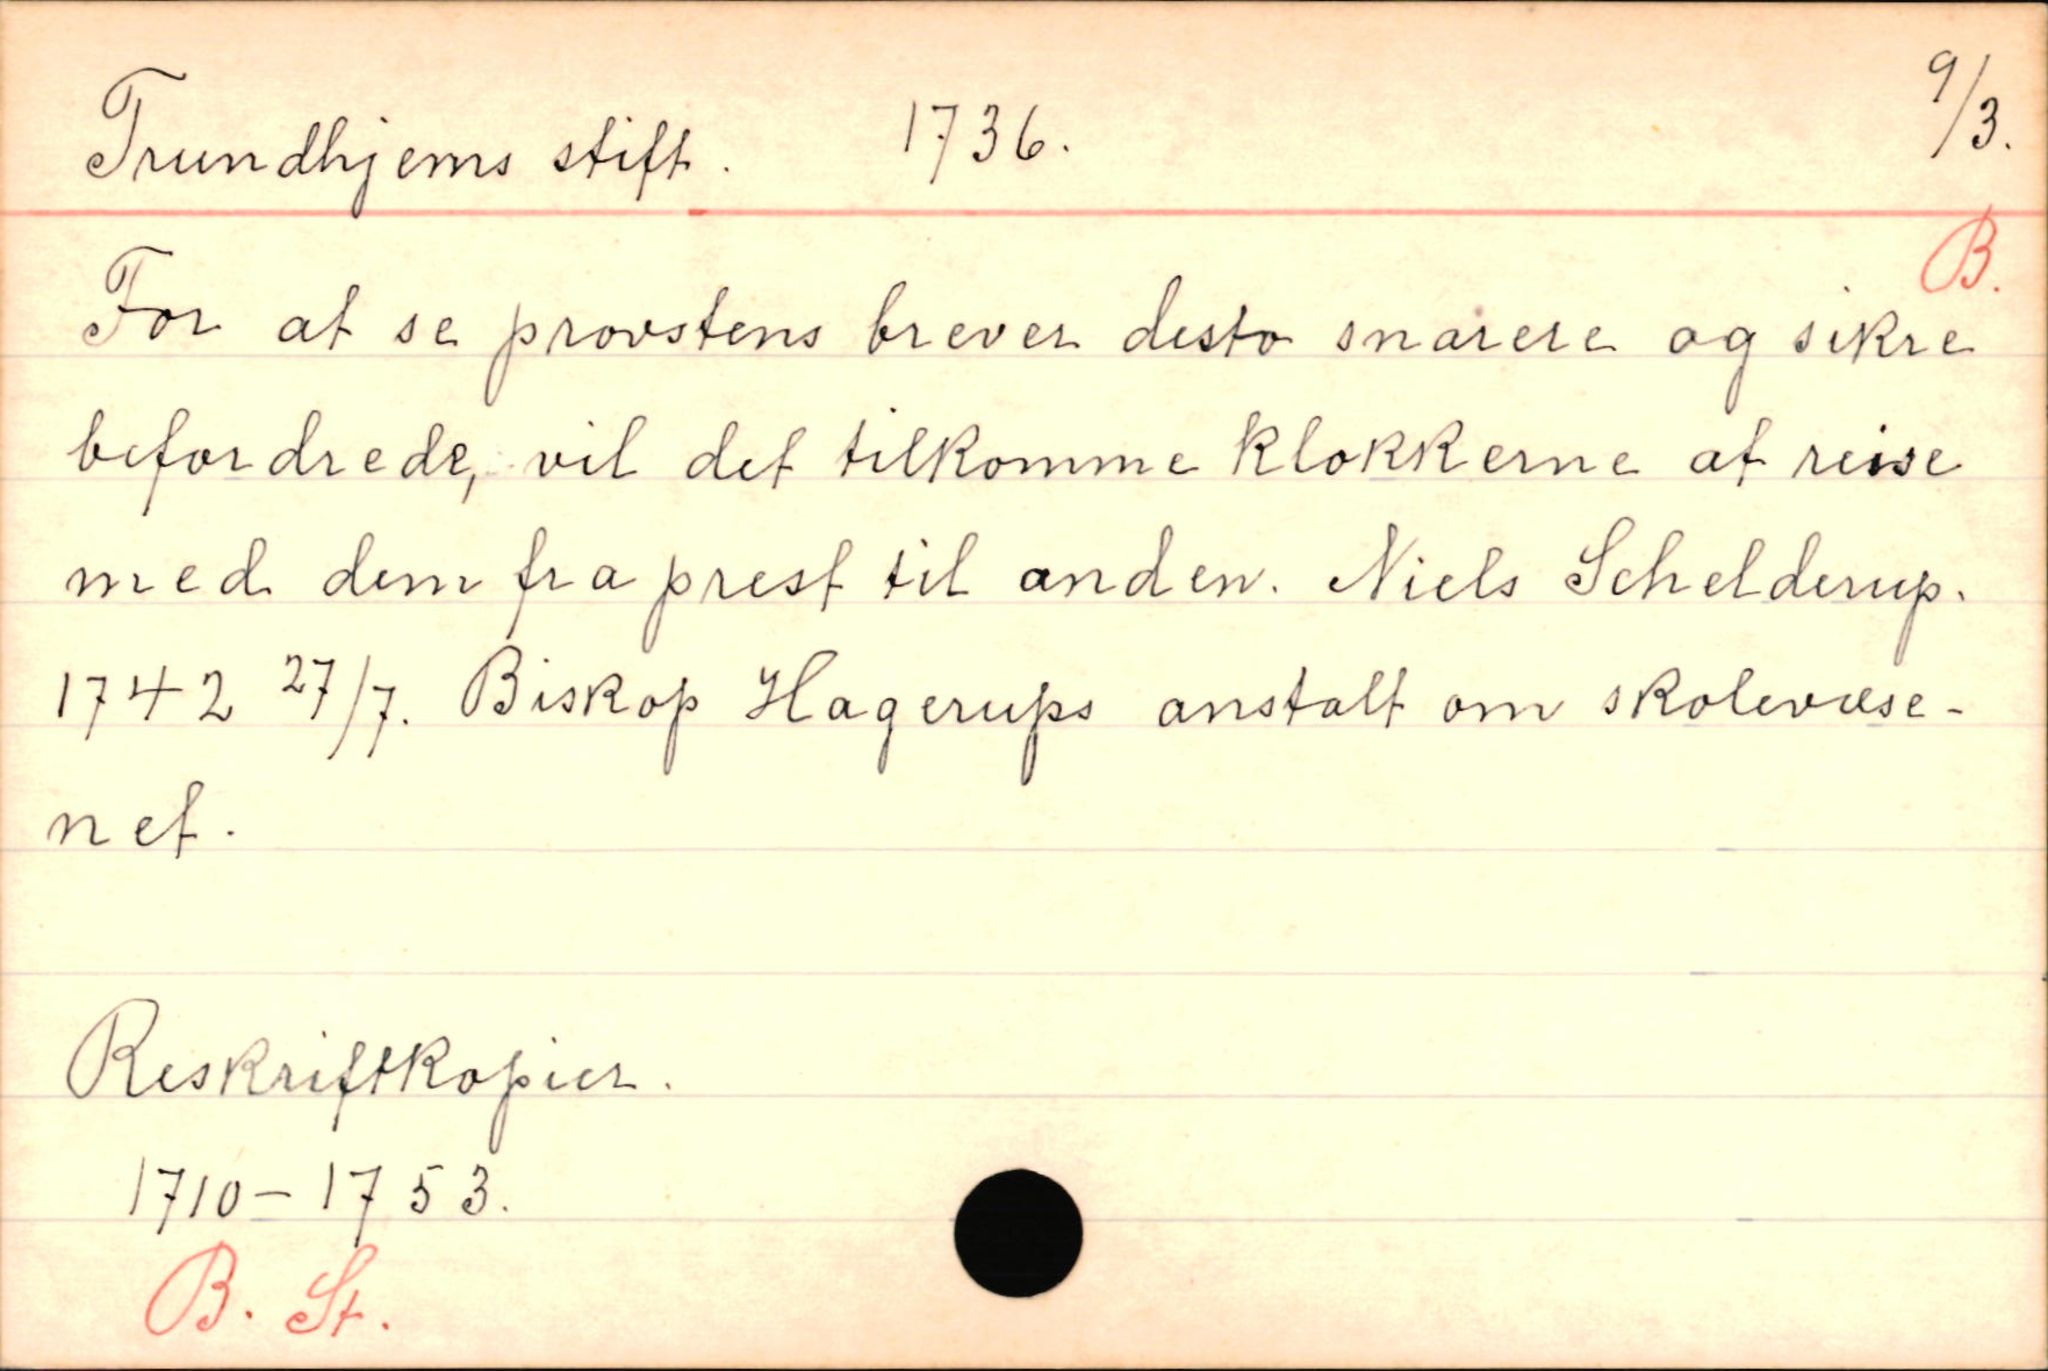 Trundhjems stift. 1736. 9/3.
B.
For at se provstens brever desto snarere og sikre
befordrede, vil det tilkomme klokkerne at reise
med dem fra prest til anden. Niels Schelderup.
1742 27/7. Biskop Hagerups anstalt om skolevæse-
net.
Reskriftkopier.
1710-1753.
B. St.